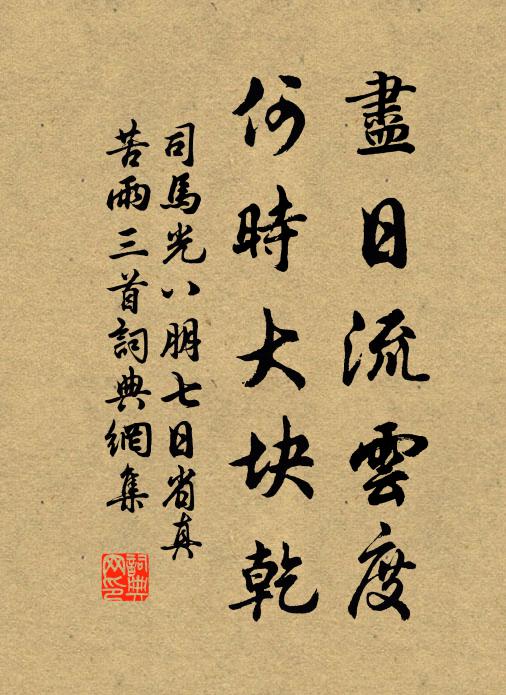 盡日流雲度
何時大块乾
司馬光八朋七日省真
苦雨三首詞典網集
詞典
网印